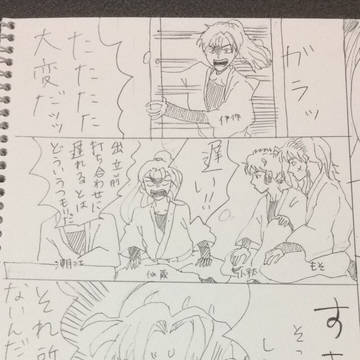 ガラッ
伊作
たたたた
大変だッ
もそ
遅い!!
仙蔵
出立前
打ち合わせに
遅れるとは
どういうつもりだ
潮江
す
そっ
し
それ所
ないんだ